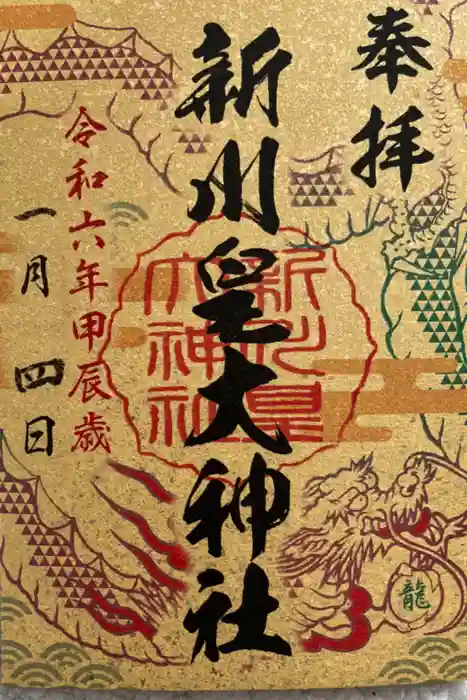 奉拝
新川皇大神社
新川皇
大神社
令和六年甲辰歳
一月四日
龍